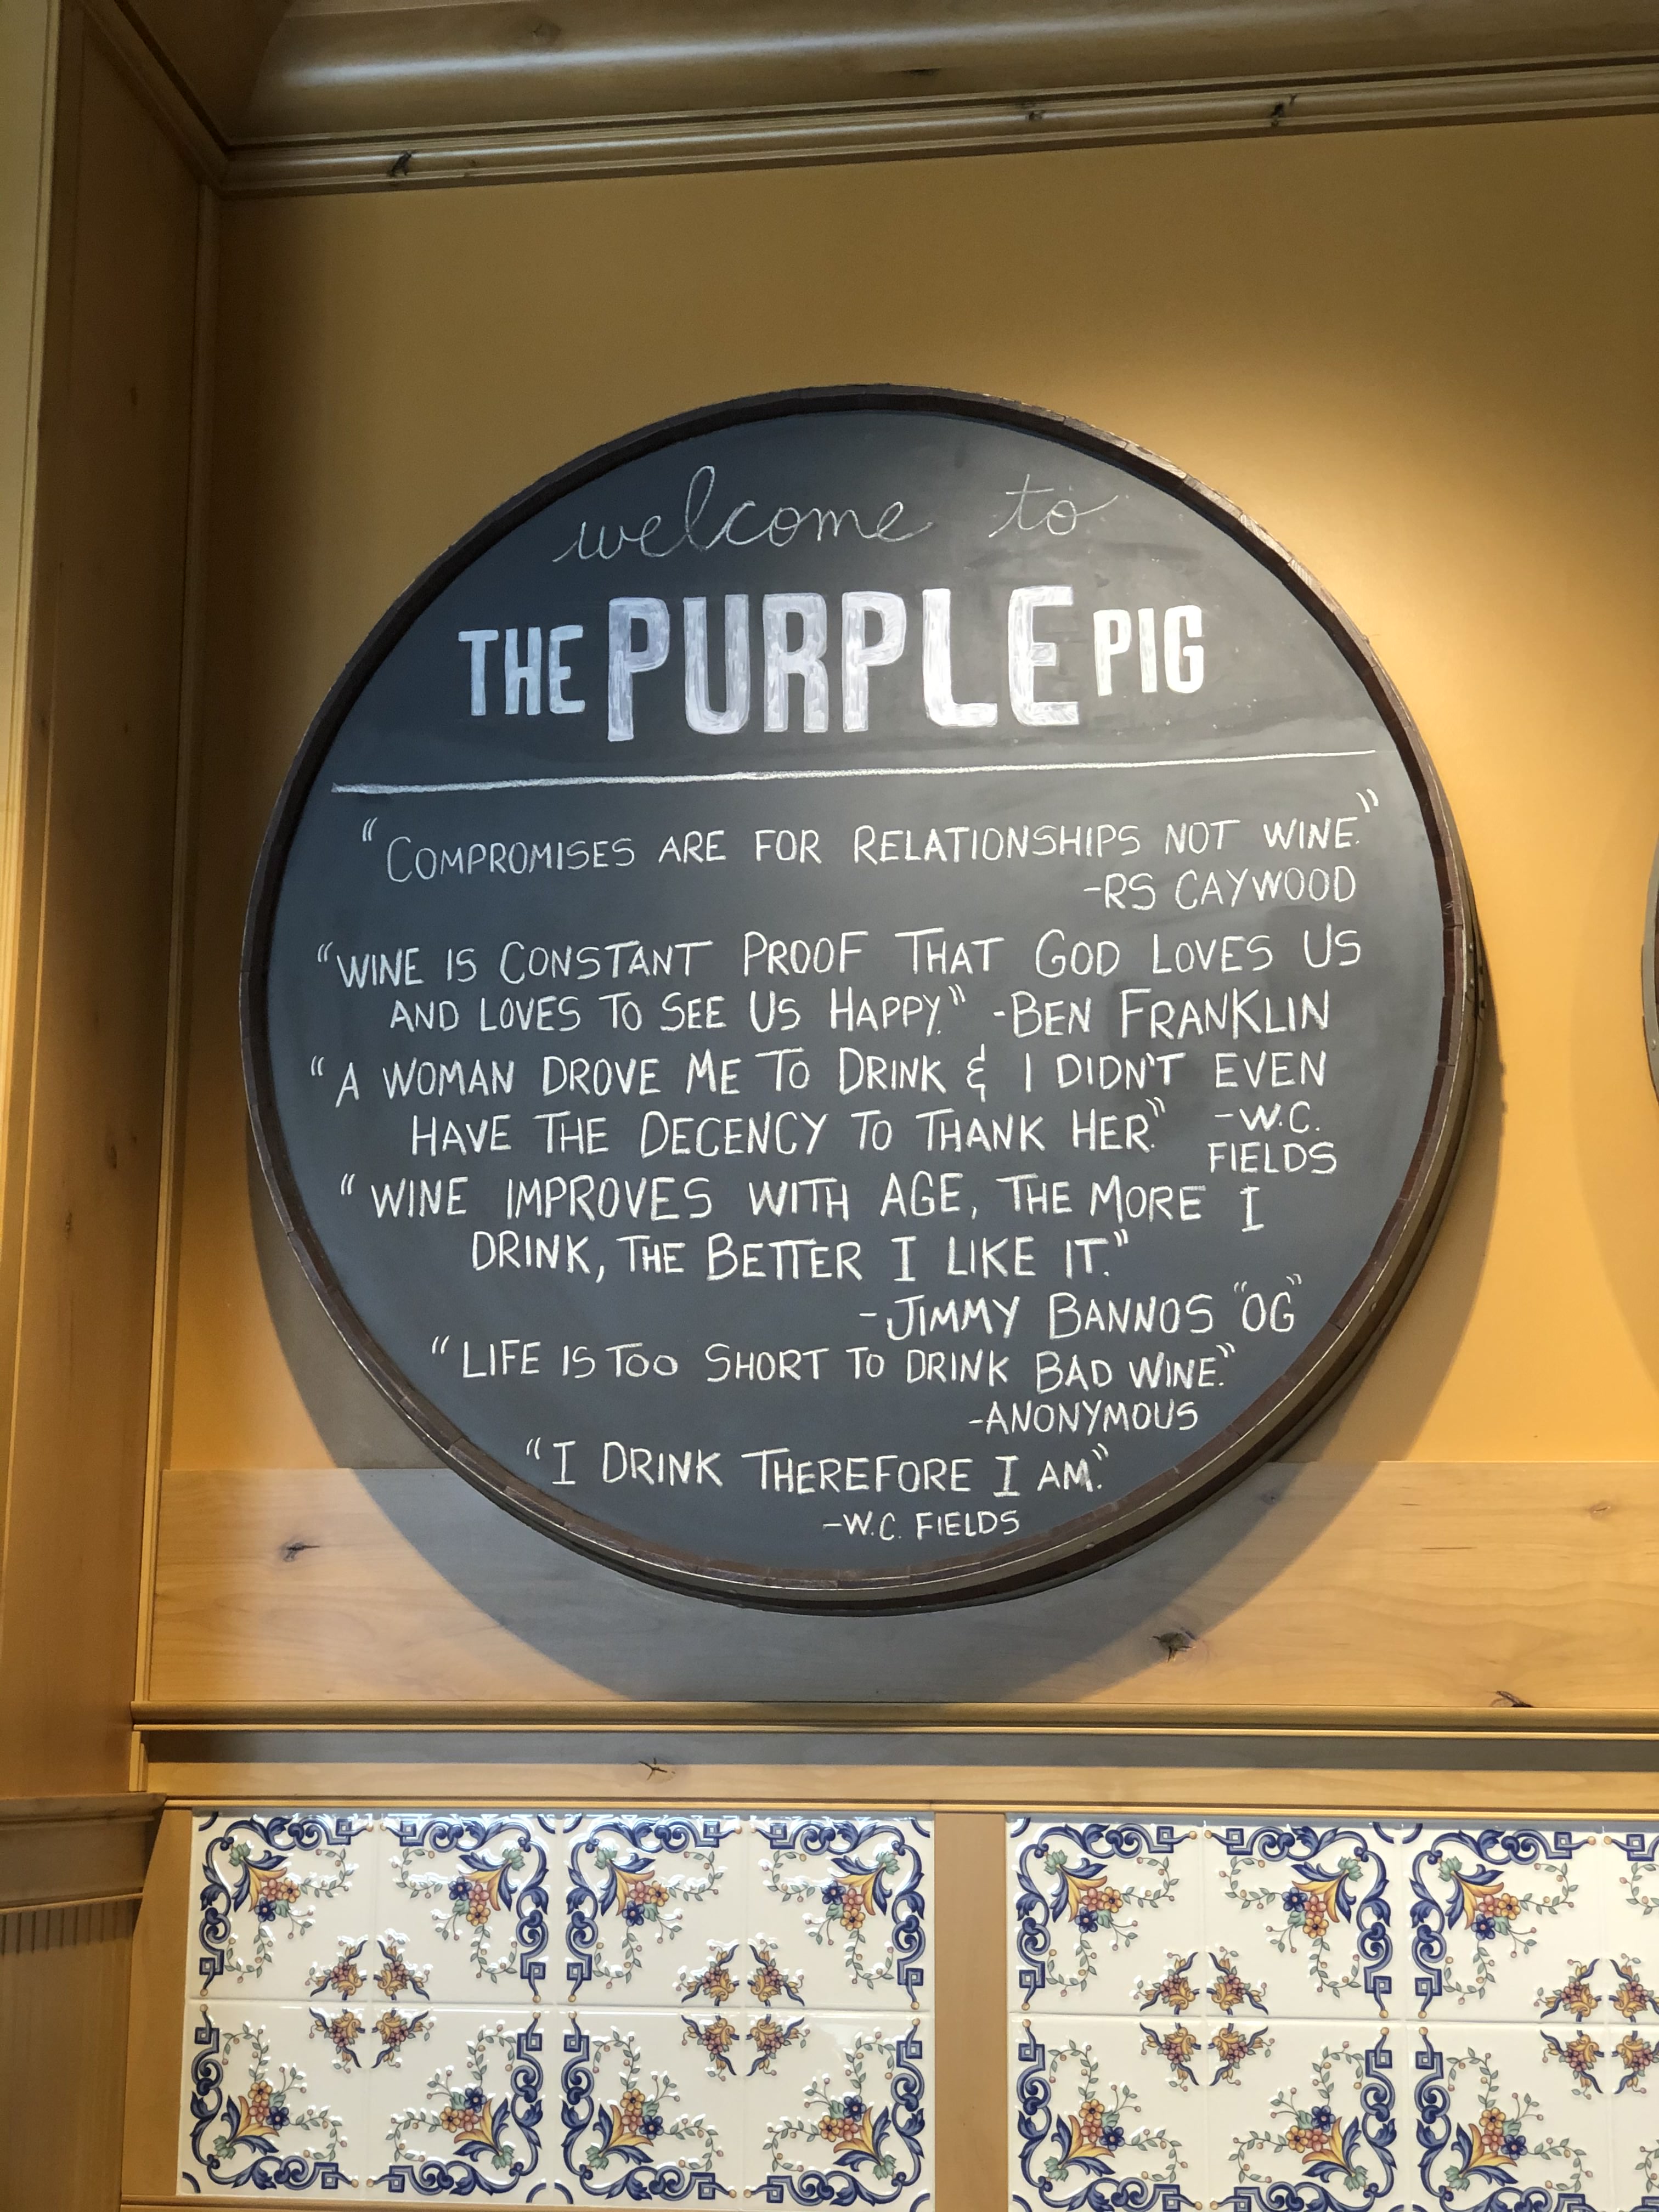 welcome to
THE PURPLE PIG
"COMPROMISES ARE FOR RELATIONSHIPS NOT WINE."
-RS CAYWOOD
"WINE IS CONSTANT PROOF THAT GOD LOVES US
AND LOVES TO SEE US HAPPY." -BEN FRANKLIN
"A WOMAN DROVE ME TO DRINK & I DIDN'T EVEN
HAVE THE DECENCY TO THANK HER." -W.C.
FIELDS
"WINE IMPROVES WITH AGE, THE MORE I
DRINK, THE BETTER I LIKE IT."
-JIMMY BANNOS "OG"
"LIFE IS TOO SHORT TO DRINK BAD WINE."
-ANONYMOUS
"I DRINK THEREFORE I AM."
-W.C. FIELDS